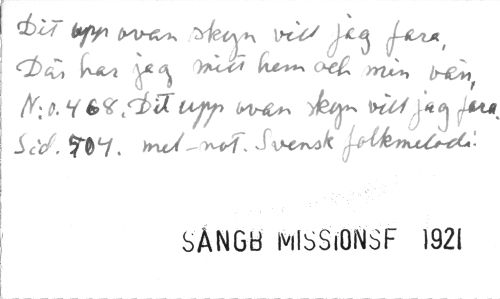 Dit upp ovan skyn vill jag fara,
Där har jag mitt hem och min vän,
N:o. 468. Dit upp ovan skyn vill jag fara.
Sid. 504. mel-not. Svensk folkmelodi.
SÅNGB MISSIONSF 1921